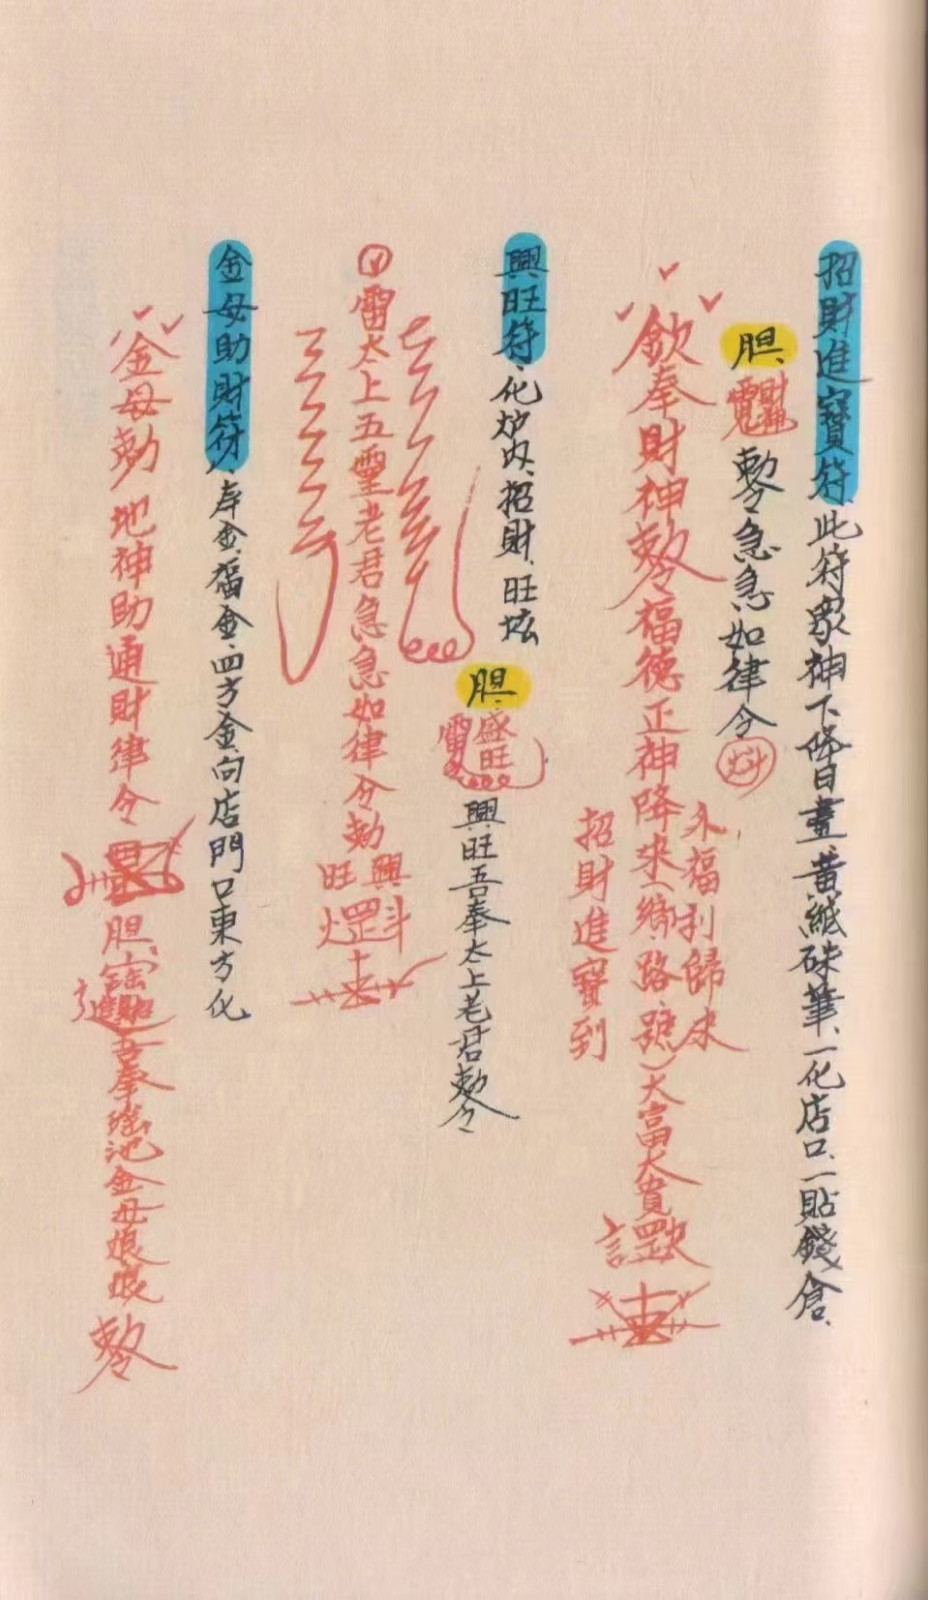 招財進寶符、此符眾神下降日畫、黃紙硃筆、一化店口、一貼錢倉、
胆、敕令急急如律令
欽奉財神敕令福德正神降來(鄉路號)大富大貴
永福利歸來
招財進寶到
興旺符、化炉內、招財、旺坛
胆、盛旺
興旺吾奉太上老君敕令
雷太上五靈老君急急如律令敕
興旺
金母助財符、寿金、福金、四方金、向店門口東方化
金母敕地神助通財律令
胆、吾奉瑤池金母娘娘敕令